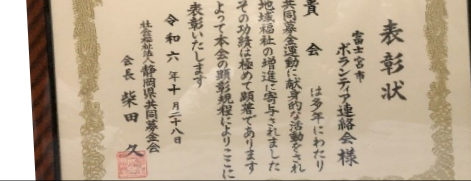 表彰状
富士宮市
ボランティア連絡会様
貴会は多年にわたり
共同募金運動に献身的な活動をされ
地域福祉の増進に寄与されました
その功績は極めて顕著であります
よって本会の顕彰規程によりここに
表彰いたします
令和六年十月二十八日
社会福祉法人静岡県共同募金会
会長 柴田 久